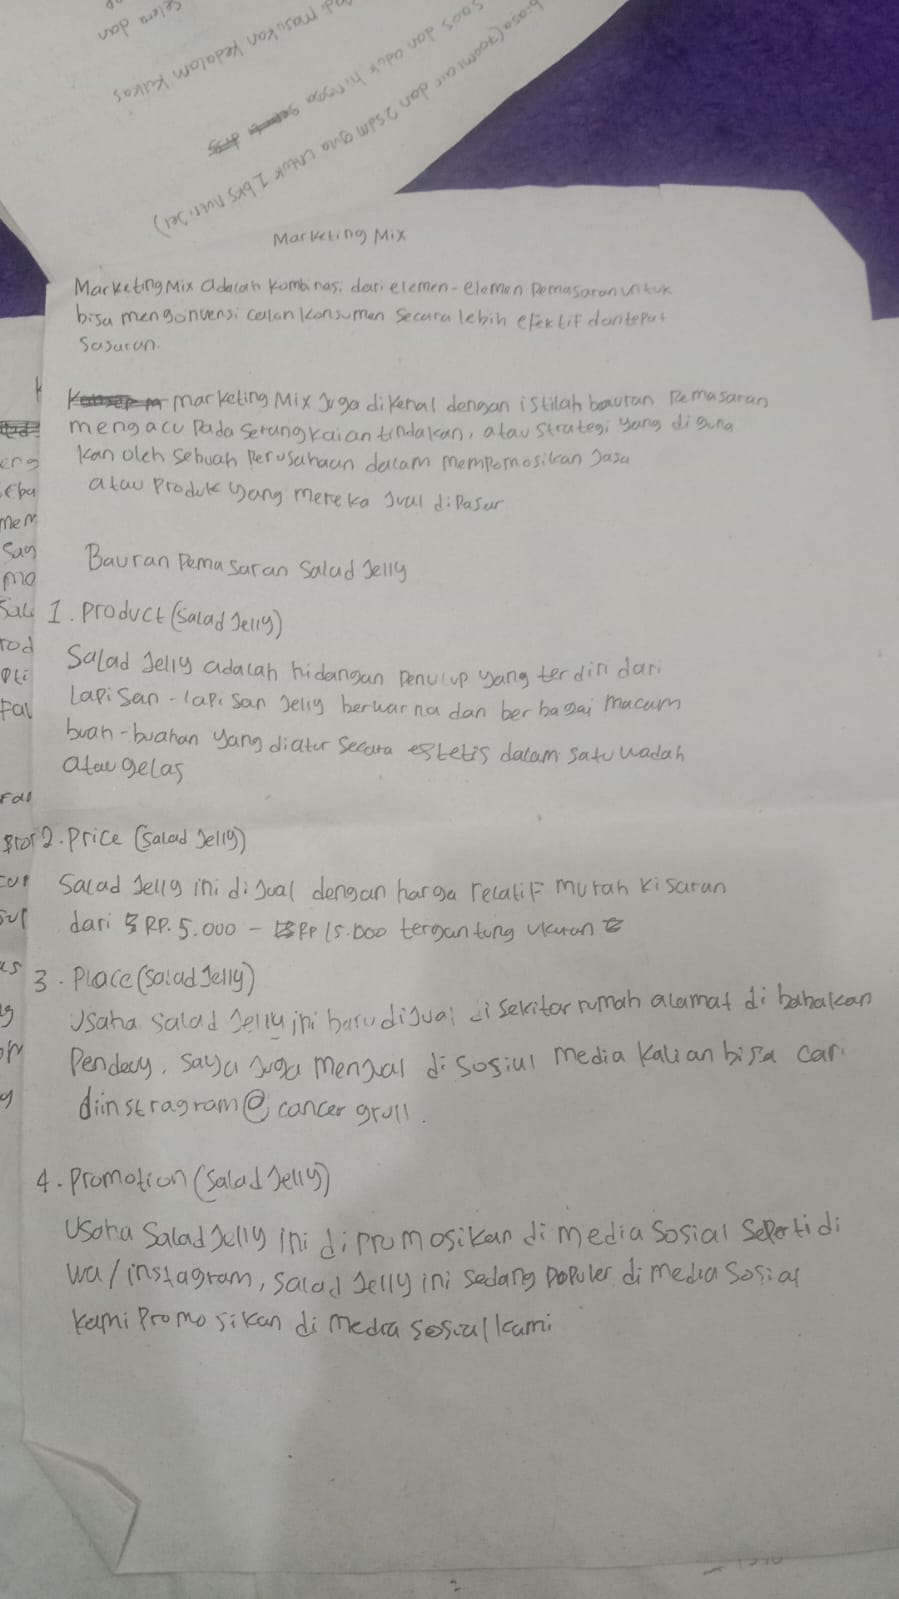 selera dan
masukan kedalam kulkas
saos dan aduk hingga
biasa (700ml air dan 2 sdm gula untuk 1 bks nutrijel)
Marketing Mix
Marketing Mix adalah kombinasi dari elemen-elemen Pemasaran untuk
bisa mengonvensi calon konsumen secara lebih efektif dan tepat
sasaran.
marketing Mix Juga dikenal dengan istilah bauran Pemasaran
mengacu Pada serangkaian tindakan, atau strategi yang diguna
kan oleh sebuah Perusahaan dalam mempomosikan Jasa
atau Produk yang mereka Jual diPasar
Bauran Pemasaran Salad Jelly
1. Product (Salad Jelly)
Salad Jelly adalah hidangan Penutup yang terdiri dari
Lapisan-lapisan Jelly berwarna dan berbagai macam
buah-buahan yang diatur Secara estetis dalam satu wadah
atau gelas
2. Price (Salad Jelly)
Salad Jelly ini diJual dengan harga relatif murah kisaran
dari RP. 5.000 - Rp 15.000 tergantung ukuran
3. Place (Salad Jelly)
Usaha Salad Jelly ini baru diJual disekitar rumah alamat di babakan
Pendeuy, Saya Juga menJual di Sosial media kalian bisa cari
diinstragram@cancer grull.
4. Promotion (Salad Jelly)
Usaha Salad Jelly ini dipromosikan di media sosial seperti di
wa/instagram, Salad Jelly ini sedang populer di media sosial
kami Promosikan di media sosial kami